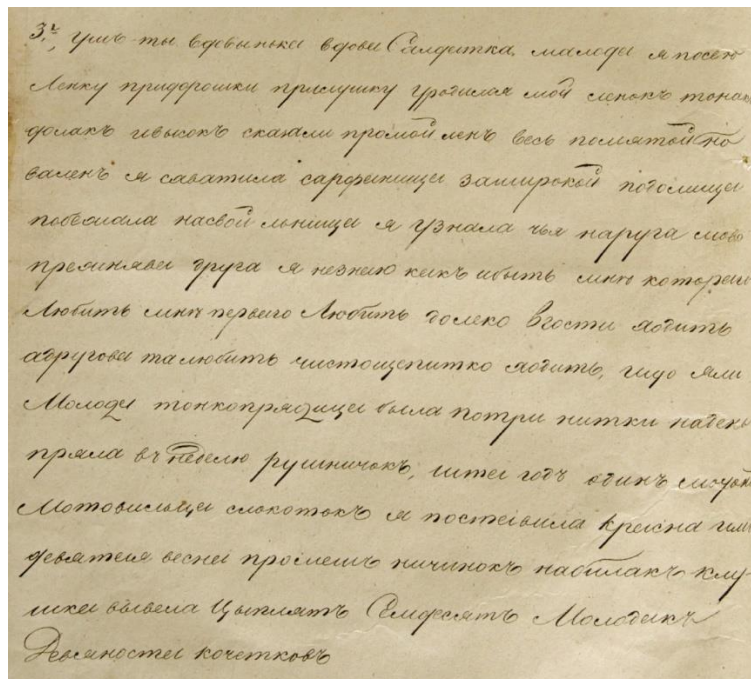 3.й, умъ-ты вдовынька вдова Салдатка. малода я посею
Ленку придорошки прилушку уродился мой ленокъ тонак
долакъ ивысокъ сказали промой ленъ весь помятой по
валенъ я схватила сарафаница заширокой подолища
побежала насвой льнища я узнала чья наруга мово
преминява друга я незнаю какъ ибыть мнѣ котораго
Любить мнѣ первого Любить далеко вгости ходить
адругова та любить чистощепитко ходить, шдо яли
Молода тонкопрядица была потри нитки надень
пряла внѣделю рушничокъ, штея годъ одинъ
Мотовильца смокотокъ я постановила красна или
девятая весна промешъ ниченокъ набилакъ клу-
шка вывела Цыплятъ Семдесятъ Молодакъ
Девяноста кочетковъ